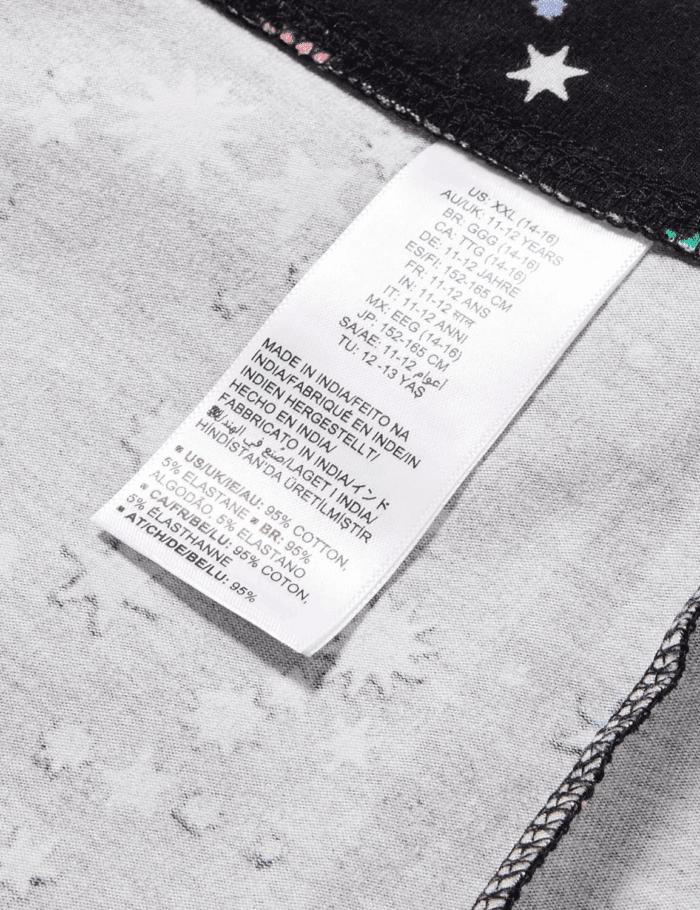 US: XXL (14-16)
AU/UK: 11-12 YEARS
BR: GGG (14-16)
CA: TTG (14-16)
DE: 11-12 JAHRE
ES/FI: 152-165 CM
FR: 11-12 ANS
IN: 11-12 साल
IT: 11-12 ANNI
MX: EEG (14-16)
JP: 152-165 CM
SA/AE: 11-12 اعوام
TU: 12 -13 YAŞ
MADE IN INDIA/FEITO NA
ÍNDIA/FABRIQUÉ EN INDE/IN
INDIEN HERGESTELLT/
HECHO EN INDIA/
FABBRICATO IN INDIA/インド
صُنع في الهند/LAGET I INDIA/
HİNDİSTAN'DA ÜRETİLMİŞTİR
▪ US/UK/IE/AU: 95% COTTON,
5% ELASTANE ▪ BR: 95%
ALGODÃO, 5% ELASTANO
▪ CA/FR/BE/LU: 95% COTON,
5% ÉLASTHANNE
▪ AT/CH/DE/BE/LU: 95%